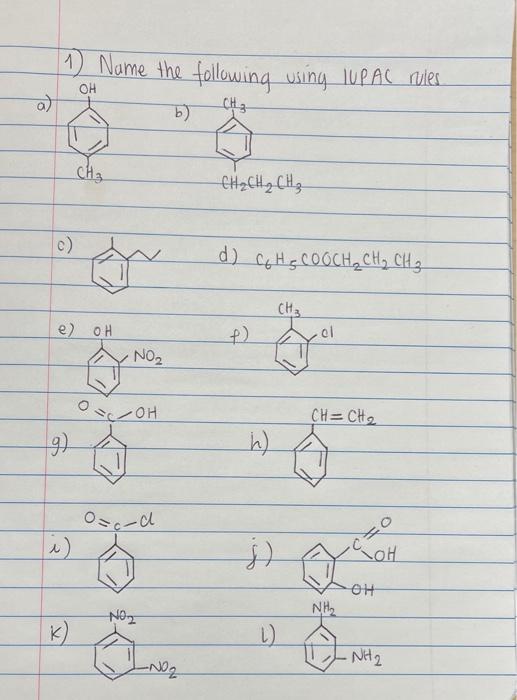 1) Name the following using IUPAC rules
a) OH
CH3
b) CH3
CH2CH2CH3
c)
d) C6H5COOCH2CH2CH3
e) OH
NO2
f) CH3
Cl
g) O=C-OH
h) CH=CH2
i) O=C-Cl
j) C=O
OH
OH
k) NO2
-NO2
l) NH2
-NH2